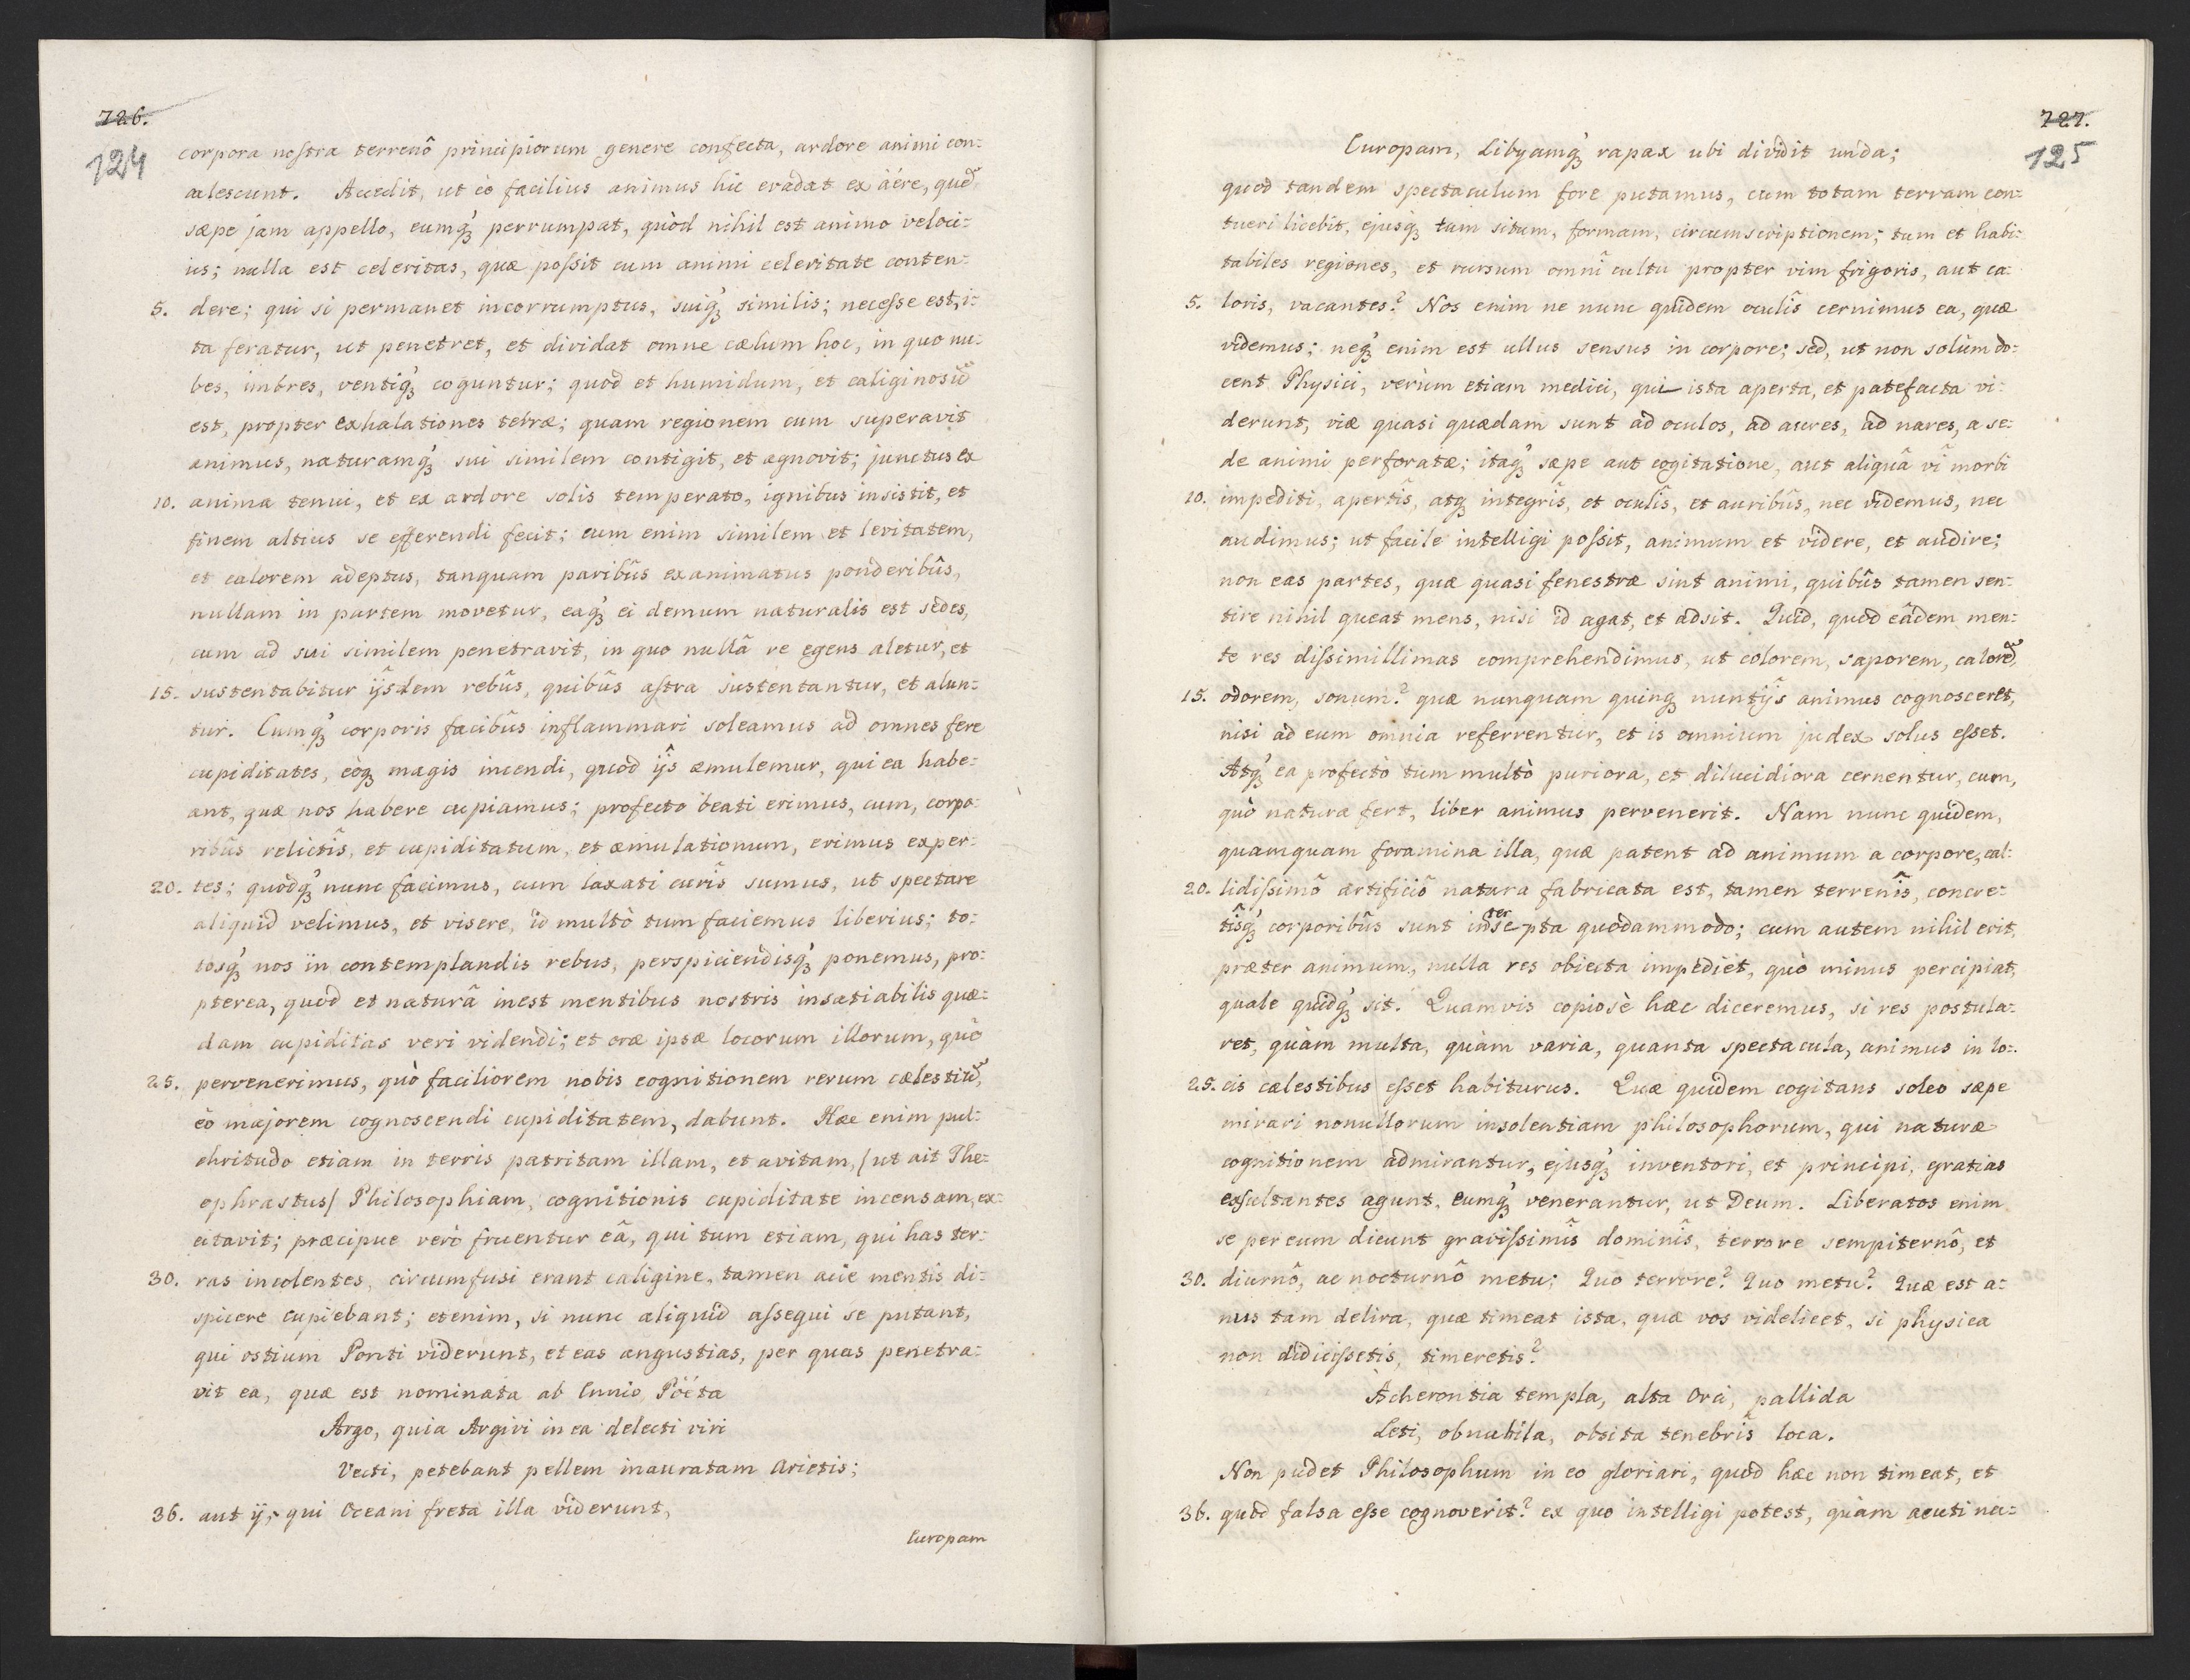 726.
124
corpora nostra terrenô principiorum genere confecta, ardore animi con:
calescunt. Accedit, ut eò facilius animus hic evadat ex aëre, quẽ
sæpe jam appello, eumq́ꝫ perrumpat, quòd nihil est animo veloci:
us; nulla est celeritas, quæ possit cum animi celeritate conten:
5. dere; qui si permanet incorrumptus, suiq́ꝫ similis; necesse est, i:
ta feratur, ut penetret, et dividat omne cælum hoc, in quo nu:
bes, imbres, ventiq́ꝫ coguntur; quod et humidum, et caliginosũ
est, propter exhalationes terræ; quam regionem cum superavit
animus, naturamq́ꝫ sui similem contigit, et agnovit; junctus ex
10. anima tenui, et ex ardore solis temperato, ignibus insistit, et
finem altius se efferendi fecit; cum enim similem et levitatem,
et calorem adeptus, tanquam paribûs exanimatus ponderibûs,
nullam in partem movetur, eaq́ꝫ ei demum naturalis est sedes,
cum ad sui similem penetravit, in quo nullâ re egens aletur, et
15. sustentabitur ijsdem rebûs, quibûs astra sustentantur, et alun:
tur. Cumq́ꝫ corporis facibûs inflammari soleamus ad omnes fere
cupiditates, eòqꝫ magis incendi, quod ijs æmulemur, qui ea habe:
ant, quæ nos habere cupiamus; profecto beati erimus, cum, corpo:
ribûs relictîs, et cupiditatum, et æmulationum, erimus exper:
20. tes; quodq́ꝫ nunc facimus, cum laxati curîs sumus, ut spectare
aliquid velimus, et visere, id multò tum faciemus liberius; to:
tosq́ꝫ nos in contemplandis rebus, perspiciendisq́ꝫ ponemus, pro:
pterea, quòd et naturâ inest mentibus nostris insatiabilis quæ:
dam cupiditas veri videndi; et oræ ipsæ locorum illorum, quò
25. pervenerimus, quò faciliorem nobis cognitionem rerum cælestiũ,
eò majorem cognoscendi cupiditatem, dabunt. Hæc enim pul:
chritudo etiam in terris patritam illam, et avitam, /ut ait The:
ophrastus/ Philosophiam, cognitionis cupiditate incensam, ex:
citavit; præcipue verò fruentur eâ, qui tum etiam, qui has ter:
30. ras incolentes, circumfusi erant caligine, tamen acie mentis di:
spicere cupiebant; etenim, si nunc aliquid assequi se putant,
qui ostium Ponti viderunt, et eas angustias, per quas penetra:
vit ea, quæ est nominata ab Ennio, Pöéta
Argo, quia Argivi in ea delecti viri
Vecti, petebant pellem inauratam Arietis;
36. aut ij, qui Oceani freta illa viderunt,
Europam
727.
125
Europam, Libyamq́ꝫ rapax ubi dividit unda;
quod tandem spectaculum fore putamus, cum totam terram con:
tueri licebit, ejusq́ꝫ tum situm, formam, circumscriptionem; tum et habi:
tabiles regiones, et rursum omnî cultu propter vim frigoris, aut ca:
5. loris, vacantes? Nos enim ne nunc quidem oculîs cernimus ea, quæ
videmus; neq́ꝫ enim est ullus sensus in corpore; sed, ut non solùm do:
cent Physici, verùm etiam medici, qui ista aperta, et patefacta vi:
derunt, viæ quasi quædam sunt ad oculos, ad aures, ad nares, a se:
de animi perforatæ; itaq́ꝫ sæpe aut cogitatione, aut aliquâ vî morbi
10. impediti, apertîs, atqꝫ integrîs, et oculîs, et auribûs, nec videmus, nec
audimus; ut facile intelligi possit, animum et videre, et audire;
non eas partes, quæ quasi fenestræ sint animi, quibûs tamen sen:
tire nihil queat mens, nisi id agat, et adsit. Quid, quòd eâdem men:
te res dissimillimas comprehendimus, ut colorem, saporem, calorẽ,
15. odorem, sonum? quæ nunquam quinqꝫ nuntijs animus cognosceret,
nisi ad eum omnia referrentur, et is omnium judex solus esset.
Atq́ꝫ ea profectò tum multò puriora, et dilucidiora cernentur, cum,
quò natura fert, liber animus pervenerit. Nam nunc quidem,
quamquam foramina illa, quæ patent ad animum a corpore, cal:
20. lidissimô artificiô natura fabricata est, tamen terrenîs, concre:
tîsq́ꝫ corporibûs sunt intersepta quodammodo; cum autem nihil erit,
præter animum, nulla res obiecta impediet, quò minus percipiat,
quale quidq́ꝫ sit. Quamvis copiosè hæc diceremus, si res postula:
ret, quàm multa, quàm varia, quanta spectacula, animus in lo:
25. cis cælestibus esset habiturus. Quæ quidem cogitans soleo sæpe
mirari nonullorum insolentiam philosophorum, qui naturæ
cognitionem admirantur, ejusq́ꝫ inventori, et principi, gratias
exsultantes agunt, eumq́ꝫ venerantur, ut Deum. Liberatos enim
se per eum dicunt gravissimîs dominîs, terrore sempiternô, et
30. diurnô, ac nocturnô metu; Quo terrore? Quo metu? Quæ est a:
nus tam delira, quæ timeat ista, quæ vos videlicet, si physica
non didicissetis, timeretis?
Acherontia templa, alta Orci, pallida
Leti, obnubila, obsita tenebrîs loca.
Non pudet Philosophum in eo gloriari, quòd hæc non timeat, et
36. quòd falsa esse cognoverit? ex quo intelligi potest, quàm acuti na: